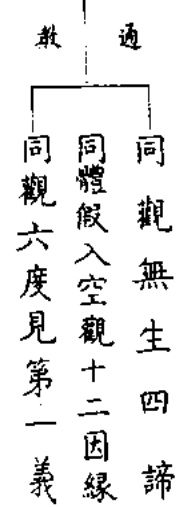 通教
同觀無生四諦
同體假入空觀十二因緣
同觀六度見第一義